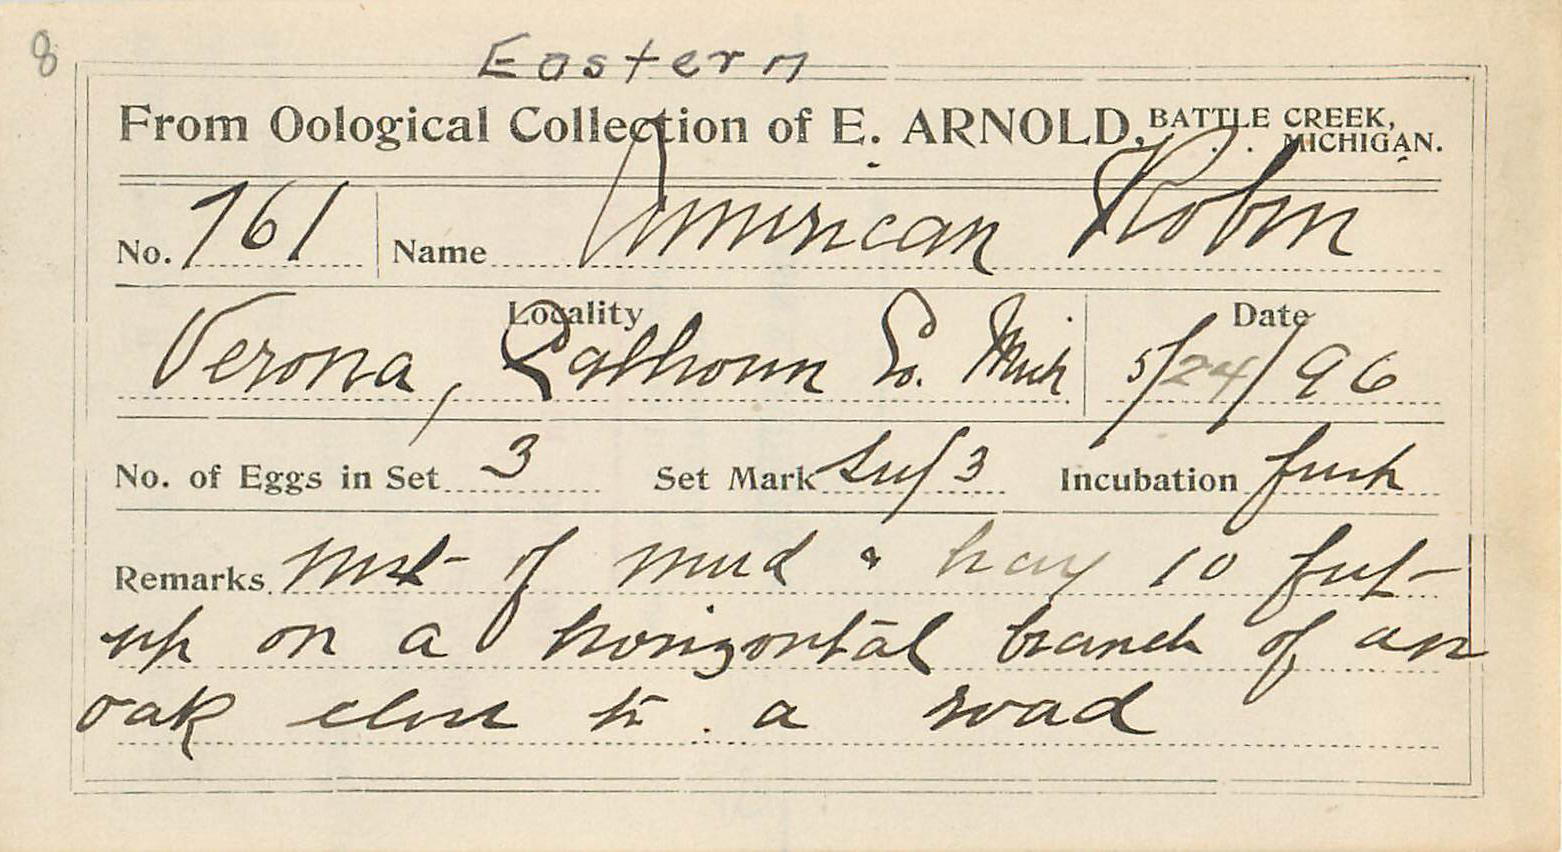 8
Eastern
From Oological Collection of E. ARNOLD, BATTLE CREEK,
. . MICHIGAN.
No. 761 Name American Robin
Locality Date
Verona, Calhoun Co. Mich 5/24/96
No. of Eggs in Set 3 Set Mark Incubation fresh
Remarks. Nest of mud & hay 10 feet
up on a horizontal branch of an
oak close to a road